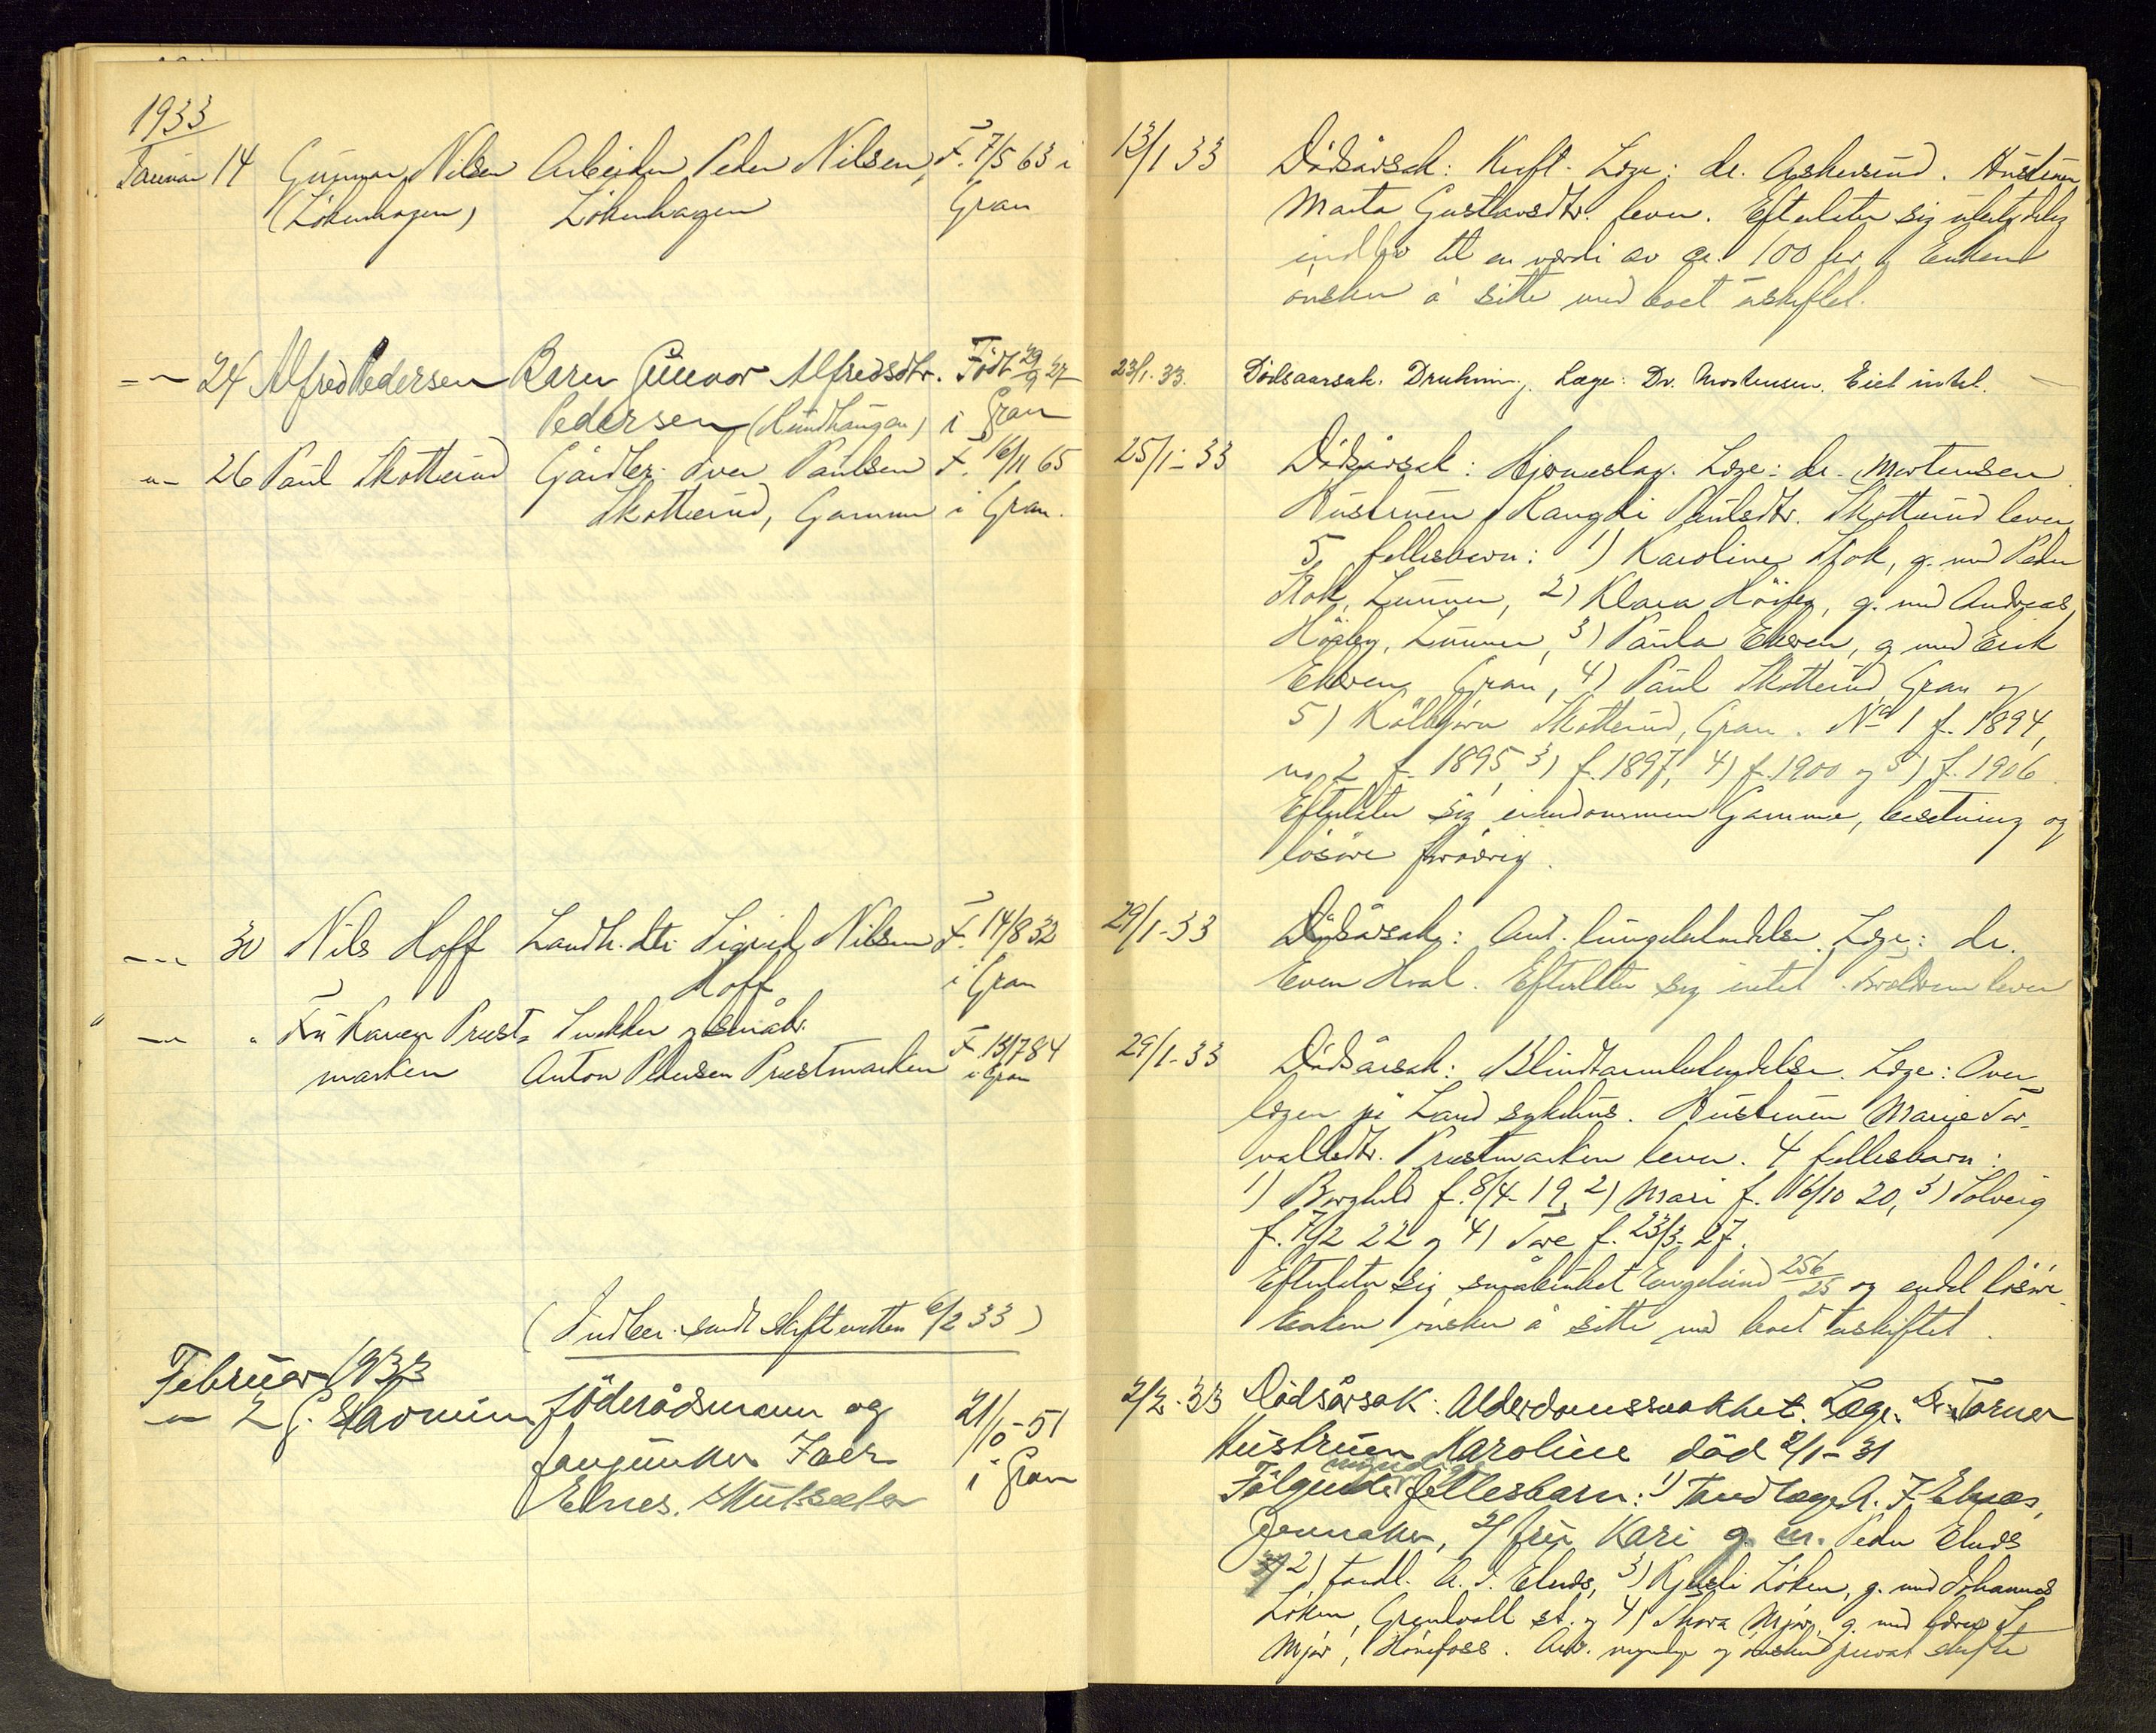 1933
Januar 14 Gunnar Nilsen Arbeider Peder Nilsen, F. 7/5 63 i
(Lökenhagen) Lökenhagen Gran
24 Alfred Pedersen Barn Gunvor Alfredsdtr. Födt 29/9 27
Pedersen i Gran
26 Paul Skotterud Gårdbr. Iver Paulsen F. 16/11 65
Skotterud, Gamme i Gran.
30 Nils Hoff Landh. dtr. Sigrid Nilsen F. 14/8 32
Hoff i Gran
Fru Karen Prest- Snekker og småbr.
marken Anton Pedersen Prestmarken F. 13/7 84
i Gran
(Indber. sendt skifteretten 6/2 33)
Februar 1933
2 föderådsmann og 21/10-51
fanejunker Iver i Gran
Elnes.
13/1 33 Dödsårsak: Kreft. Læge: dr. Askerud. Hustruen
Marta Gustavsdtr. lever. Efterlater sig ubetydelig
indbo til en værdi av ca. 100 kr. Enken
ønsker å sitte med boet uskiftet.
23/1.33. Dödsaarsak. Drukning. Læge: Dr. Mortensen. Eiet intet.
25/1-33 Dödsårsak: Hjerneslag. Læge: dr. Mortensen.
Hustruen Rangdi Paulsdtr. Skotterud lever
5 fellesbarn: 1) Karoline Hok, g. med Peder
Hok, Lunner, 2) Klara Höiby, g. med Andreas
Höiby, Lunner, 3) Paula Elven, g. med Erik
Gran, 4) Paul Skotterud, Gran og
5) Kolbjörn Skotterud, Gran. No 1 f. 1894,
no 2 f. 1895, 3) f. 1897, 4) f. 1900 og 5) f. 1906.
Efterlater sig eiendommen Gamme, besetning og
lösöre forövrig.
29/1-33 Dödsårsak: lungebetendelse. Læge: dr.
Even Hval. Efterlater sig intet. Foreldrene lever
29/1-33 Dödsårsak: Blindtarmbetendelse. Læge: Over-
lægen på Land sykehus. Hustruen Marie Tor-
valdsdtr. Prestmarken lever. 4 fellesbarn:
1) Borghild f. 8/4-19, 2) Mari f. 16/10 20, 3) Solveig
f. 7/2 22 og 4) Tore f. 23/3-27.
Efterlater sig småbruket Engelund 256/25 og endel lösöre.
Enken ønsker å sitte med boet uskiftet.
2/2.33 Dödsårsak: Alderdomssvakhet. Læge: Dr. Torner
Hustruen Karoline död 2/1-31
Fölgende myndige fellesbarn: 1) Tandlæge A. I. Elnæs,
Jevnaker, 2) fru Kari g. m. Peder Elnæs
2) tandl. A. I. Elnæs, 3) Kjersti Löken, g. med Johannes
Löken, Grindvoll st. og 4) Thora Mjör, g. med
Mjör, Hönefoss. Arv. myndige og ønsker privat skifte